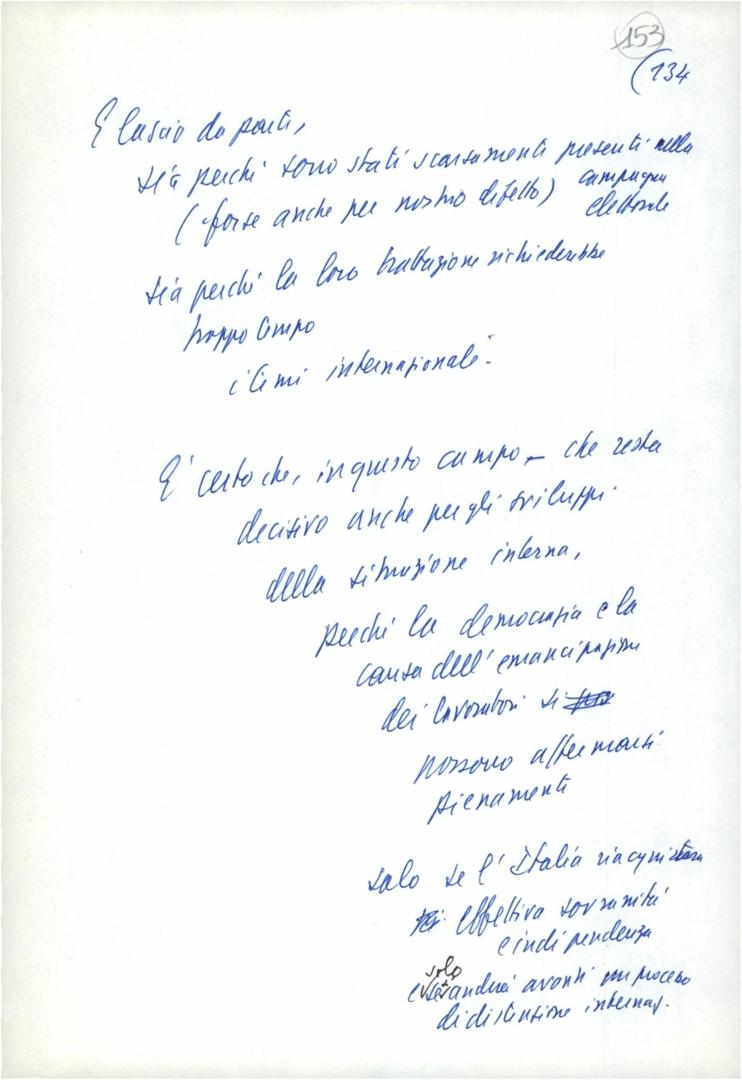 153
(134
E lascio da parte,
sia perché sono stati scarsamente presenti nella
campagna
(forse anche per nostro difetto) elettorale
sia perché la loro trattazione richiederebbe
troppo tempo
i temi internazionali.
E' certo che, in questo campo – che resta
decisivo anche per gli sviluppi
della situazione interna,
perché la democrazia e la
causa dell'emancipazione
dei lavoratori si
possono affermarsi
pienamente
solo se l'Italia riacquisterà
effettiva sovranità
e indipendenza
solo
e se andrà avanti un processo
di distensione internaz.